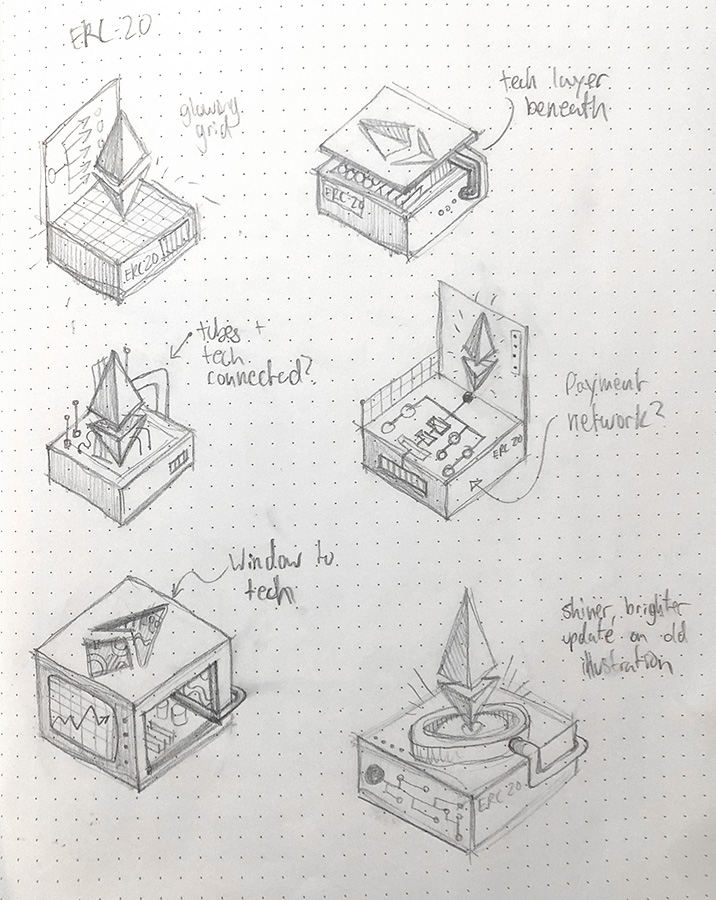 ERC-20
glowing
grid
tech layer
beneath
ERC-20
ERC20
tubes +
tech
connected?
Payment
network?
ERC 20
Window to
tech
shiner, brighter
update on old
illustration
ERC 20